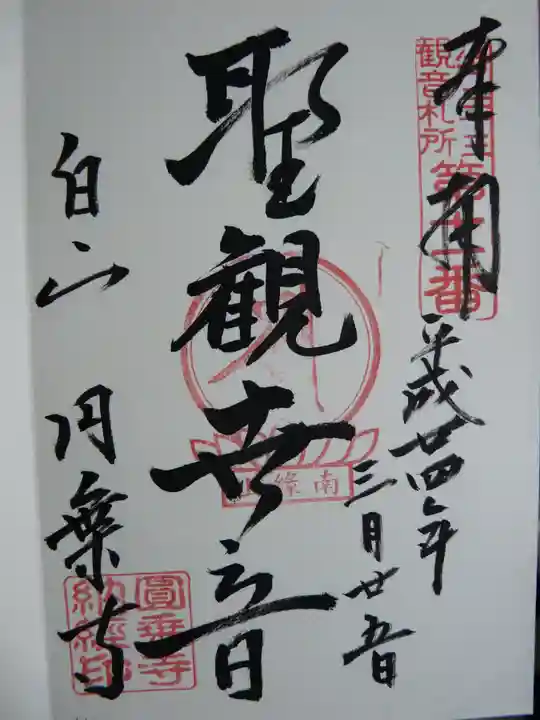 奉拝
平成廿四年
三月廿五日
聖観世音
白山 円乗寺
観音札所
第十一番
南縁山
圓乗寺
納経印